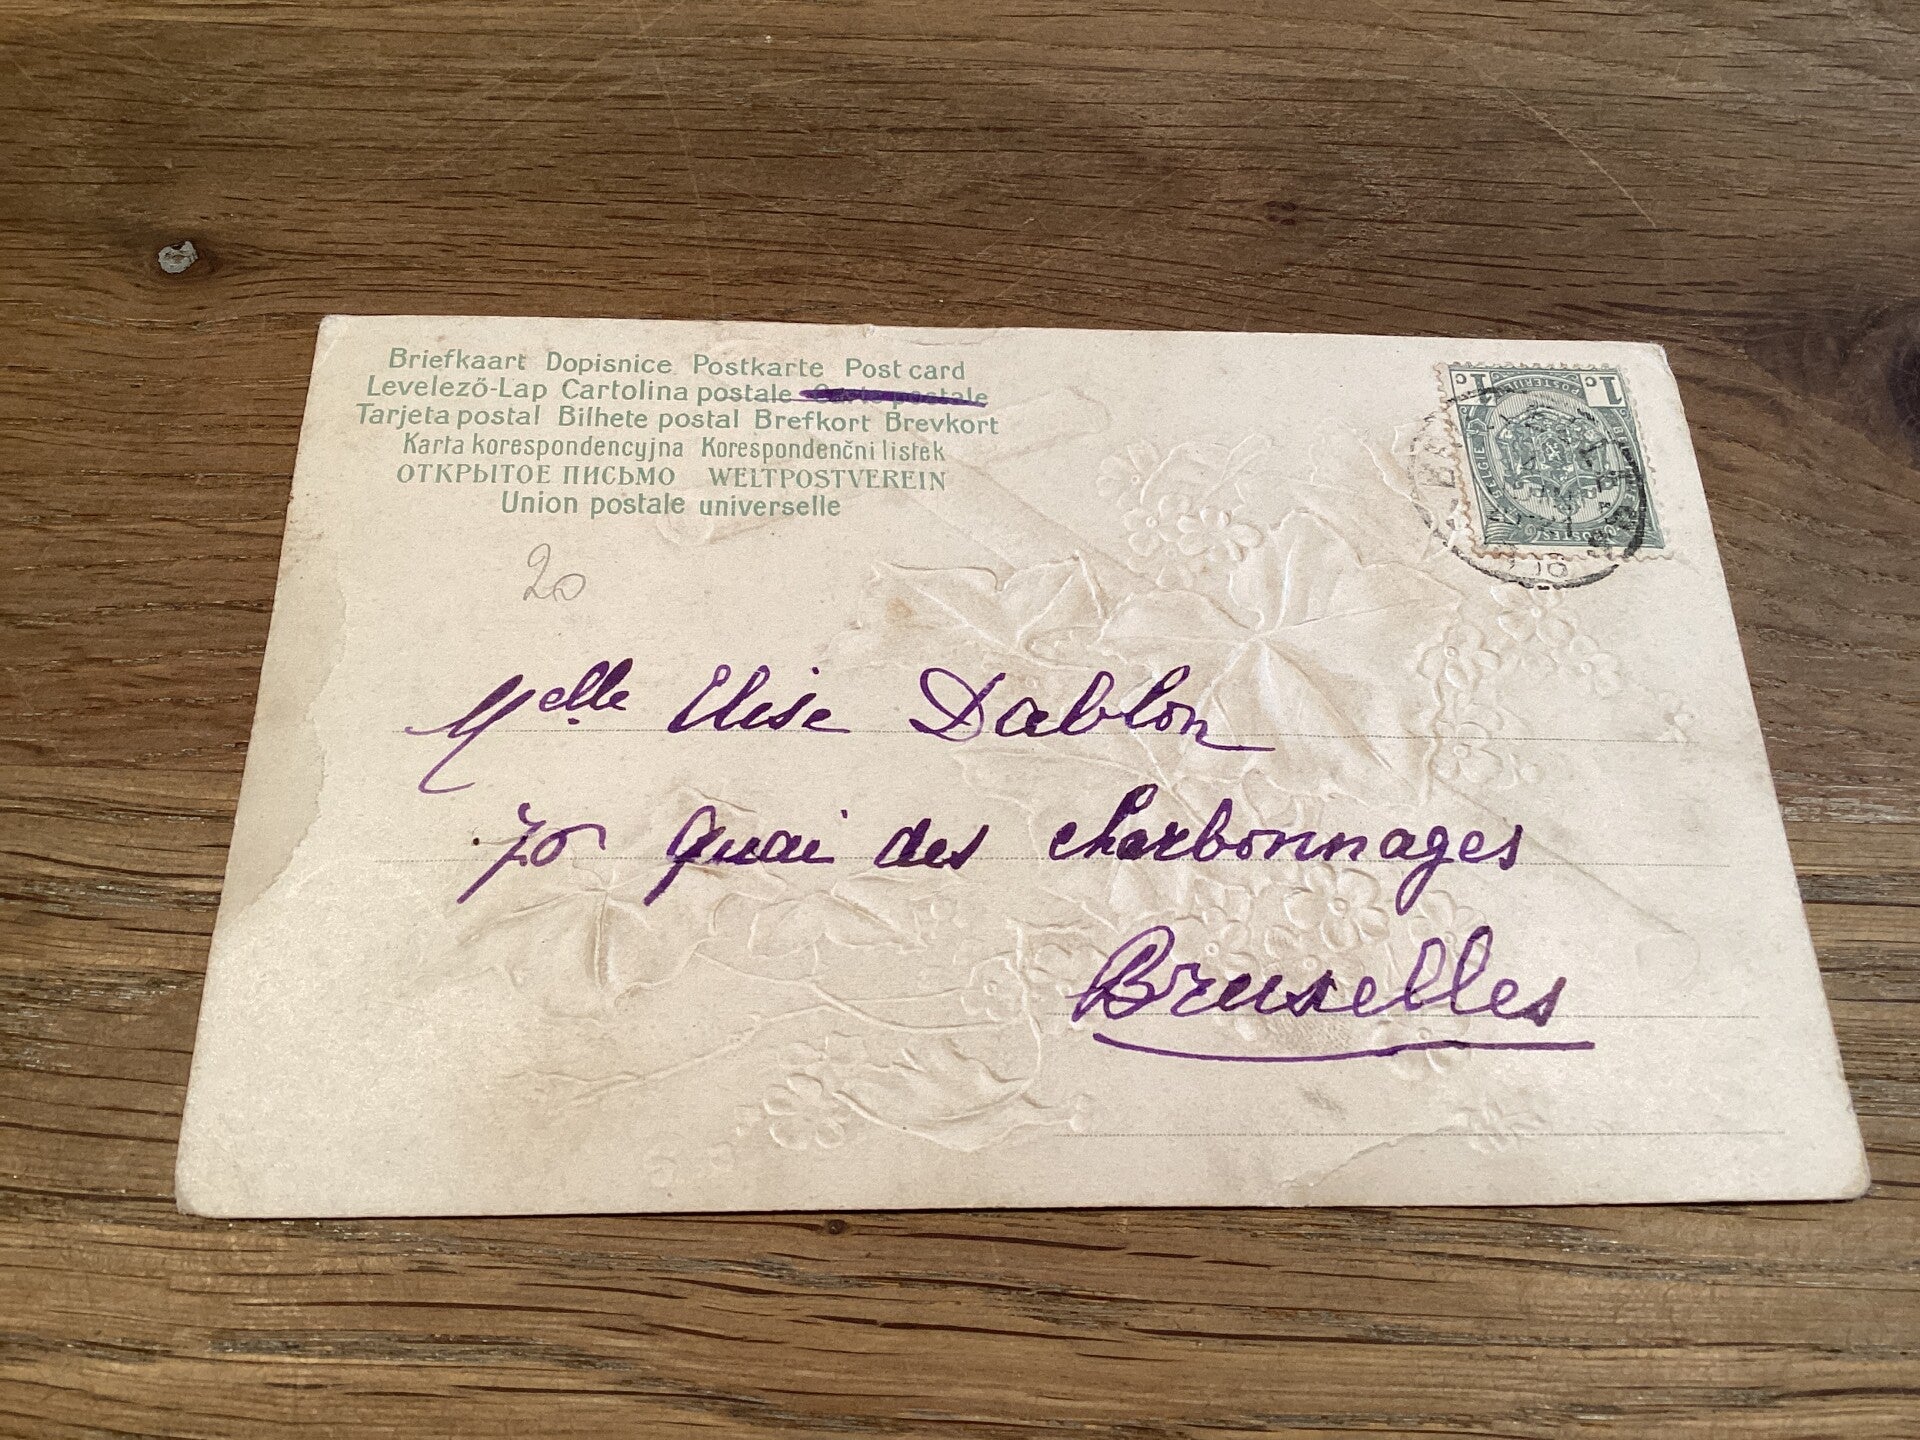 Briefkaart Dopisnice Postkarte Post card
Levelező-Lap Cartolina postale Carte postale
Tarjeta postal Bilhete postal Brefkort Brevkort
Karta korespondencyjna Korespondenčni listek
ОТКРЫТОЕ ПИСЬМО WELTPOSTVEREIN
Union postale universelle
20
1c 1c
Melle Elise Dablon
70 Quai des charbonnages
Bruxelles